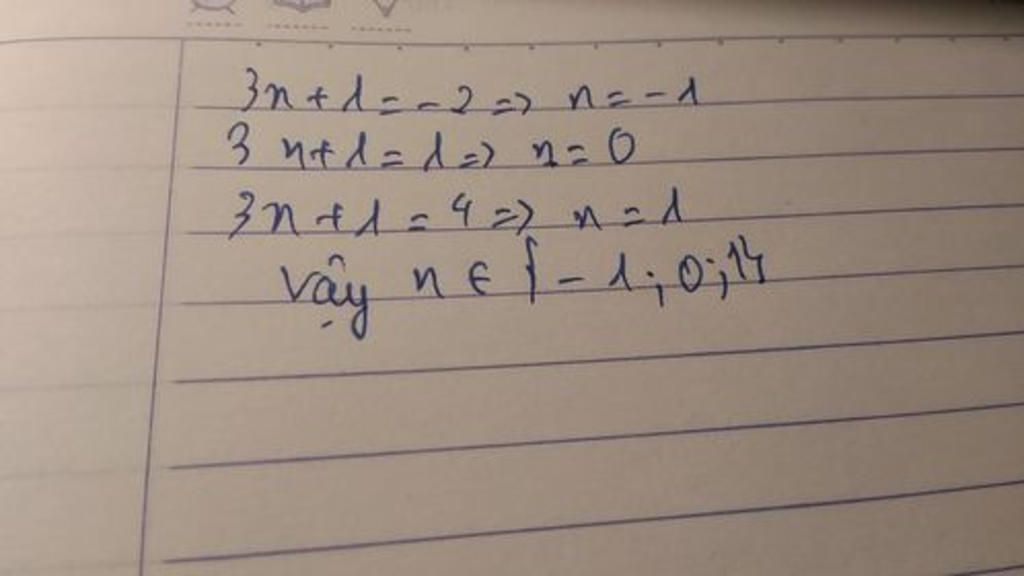 3n+1=-2=> n=-1
3n+1=1=> n=0
3n+1=4=> n=1
Vậy n ∈ {-1;0;1}